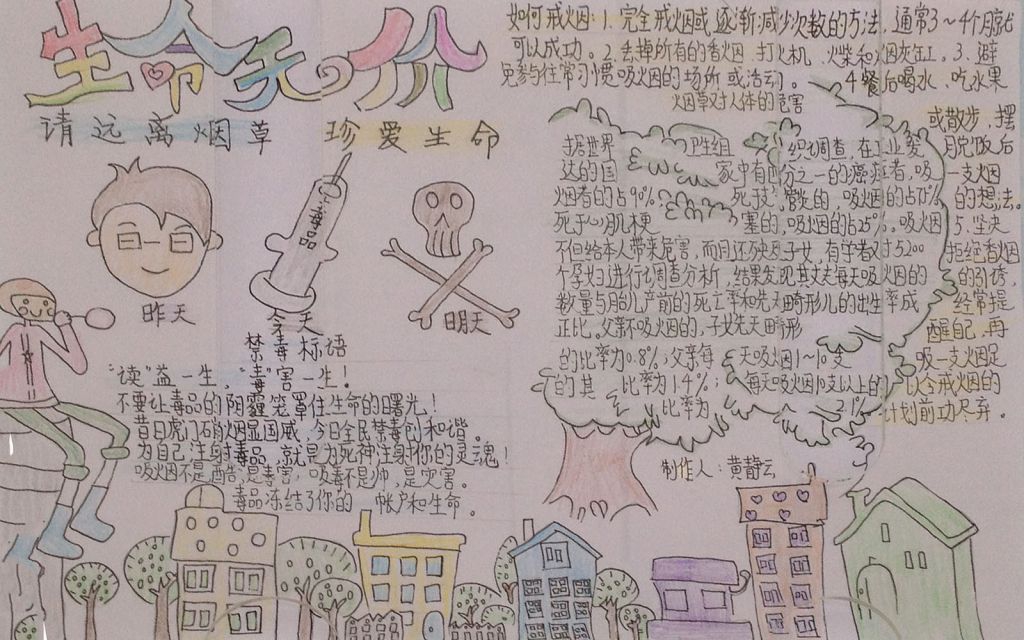 生命无价
请远离烟草 珍爱生命
昨天
毒品
今天
明天
禁毒标语
“读”益一生，“毒”害一生！
不要让毒品的阴霾笼罩住生命的曙光！
昔日虎门硝烟显国威，今日全民禁毒创和谐。
为自己注射毒品，就是为死神注射你的灵魂！
吸烟不是酷，是毒害，吸毒不是帅，是灾害。
毒品冻结了你的 帐户和生命。
如何戒烟 1.完全戒烟或逐渐减少次数的方法，通常3～4个月就
可以成功。2.丢掉所有的香烟、打火机、火柴和烟灰缸。3.避
免参与往常习惯吸烟的场所或活动。 4餐后喝水、吃水果
或散步，摆
脱饭后
一支烟
的想法。
5.坚决
拒绝香烟
的引诱，
经常提
醒自己，再
吸一支烟足
以令戒烟的
计划前功尽弃。
烟草对人体的危害
据世界 卫生组 织调查，在工业发
达的国 家中有四分之一的癌症者，吸
烟者的占90%，死于 管炎的，吸烟的占75%，
死于心肌梗 塞的，吸烟的占25%。吸烟
不但给本人带来危害，而且还殃及子女，有学者对5200
个孕妇进行调查分析，结果发现其丈夫每天吸烟的
数量与胎儿产前的死亡率和先天畸形儿的出生率成
正比。父亲不吸烟的，子女先天畸形
的比率为0.8%；父亲每 天吸烟1～10支
的其 比率为1.4%； 每天吸烟10支以上的
比率为 2.1%
制作人：黄静云